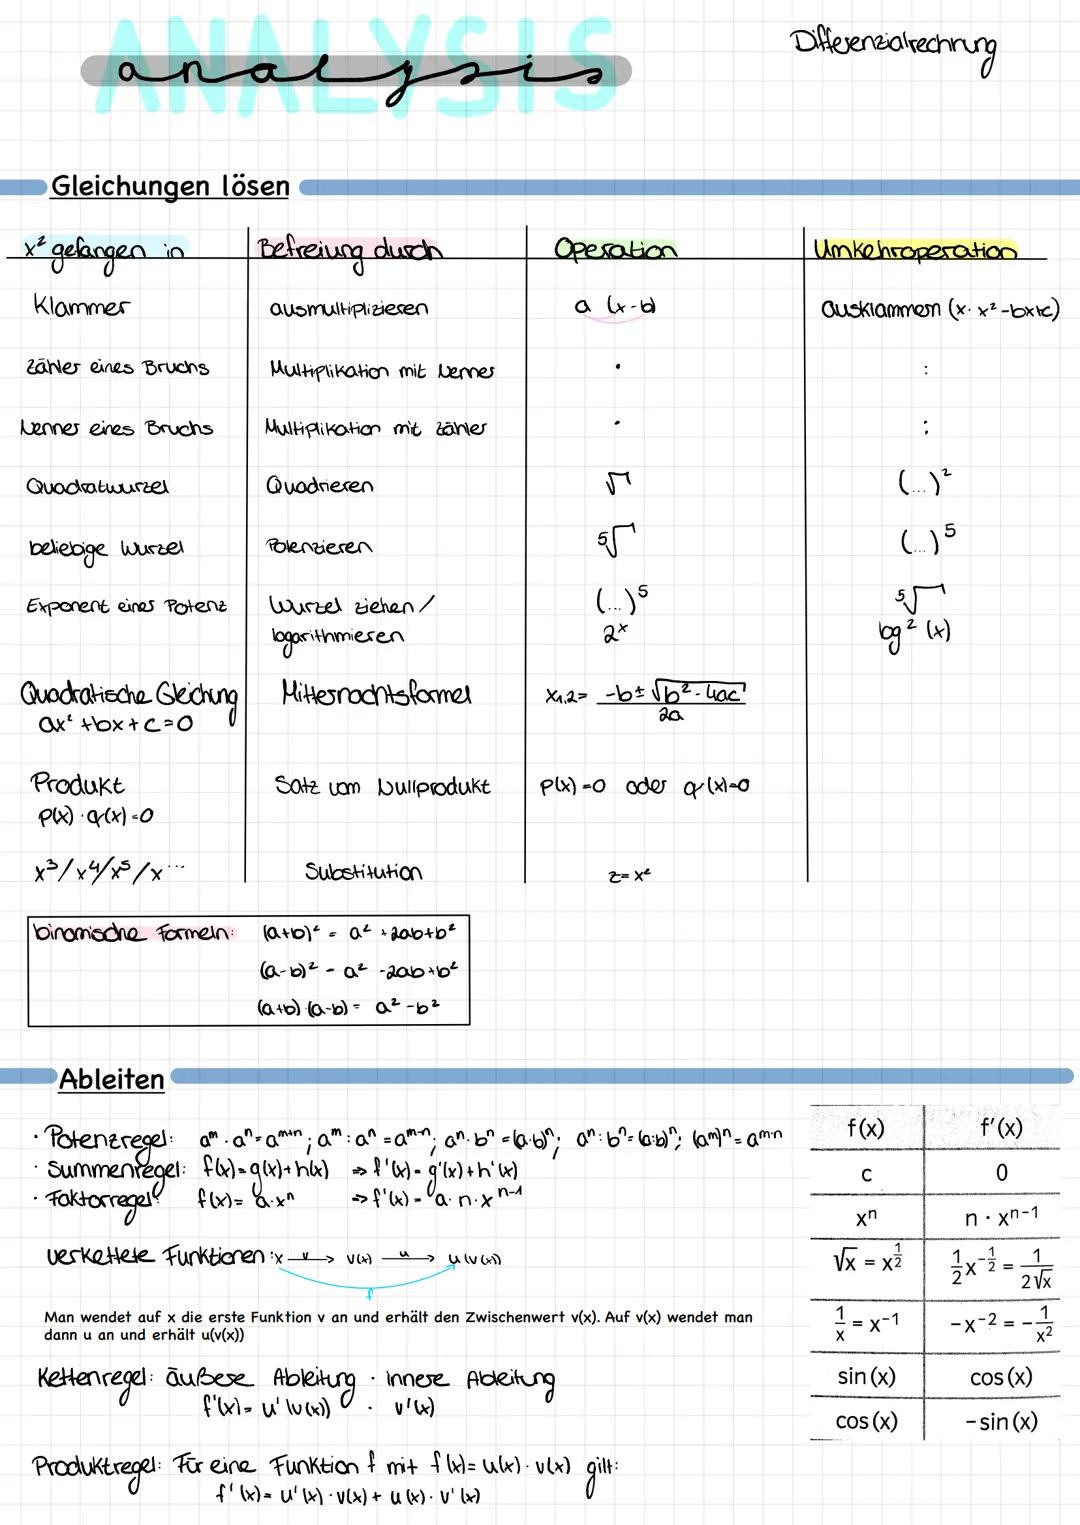 ANALYSIS
analysis
Differenzialrechnung
Gleichungen lösen
x² gefangen in | Befreiung durch | Operation | Umkehroperation
Klammer | ausmultiplizieren | a (x-b) | Ausklammern (x·x²-bx+c)
Zähler eines Bruchs | Multiplikation mit Nenner | · | :
Nenner eines Bruchs | Multiplikation mit Zähler | · | :
Quadratwurzel | Quadrieren | √ | (...)²
beliebige Wurzel | Potenzieren | ⁵√ | (...)⁵
Exponent einer Potenz | Wurzel ziehen/ | (...)⁵ | ⁵√
logarithmieren | 2ˣ | log² (x)
Quadratische Gleichung | Mitternachtsformel | x₁,₂= (-b±√(b²-4ac))/2a
ax²+bx+c=0
Produkt | Satz vom Nullprodukt | p(x)=0 oder q(x)=0
p(x)·q(x)=0
x³/x⁴/x⁵/x˙˙˙ | Substitution | z=x²
binomische Formeln: (a+b)² = a²+2ab+b²
(a-b)² = a²-2ab+b²
(a+b)·(a-b) = a²-b²
Ableiten
· Potenzregel: aᵐ·aⁿ=aᵐ⁺ⁿ; aᵐ:aⁿ=aᵐ⁻ⁿ; aⁿ·bⁿ=(a·b)ⁿ; aⁿ:bⁿ=(a:b)ⁿ; (aᵐ)ⁿ=aᵐ·ⁿ
· Summenregel: f(x)=g(x)+h(x) => f'(x)=g'(x)+h'(x)
· Faktorregel: f(x)= a·xⁿ => f'(x)= a·n·xⁿ⁻¹
verkettete Funktionen: x —v→ v(x) —u→ u(v(x))
f
Man wendet auf x die erste Funktion v an und erhält den Zwischenwert v(x). Auf v(x) wendet man
dann u an und erhält u(v(x))
Kettenregel: äußere Ableitung · innere Ableitung
f'(x)= u'(v(x)) · v'(x)
Produktregel: Für eine Funktion f mit f(x)= u(x)·v(x) gilt:
f'(x)= u'(x)·v(x)+u(x)·v'(x)
f(x) | f'(x)
c | 0
xⁿ | n · xⁿ⁻¹
√x = x^(1/2) | 1/2 x^(-1/2) = 1/(2√x)
1/x = x⁻¹ | -x⁻² = -1/x²
sin(x) | cos(x)
cos(x) | -sin(x)